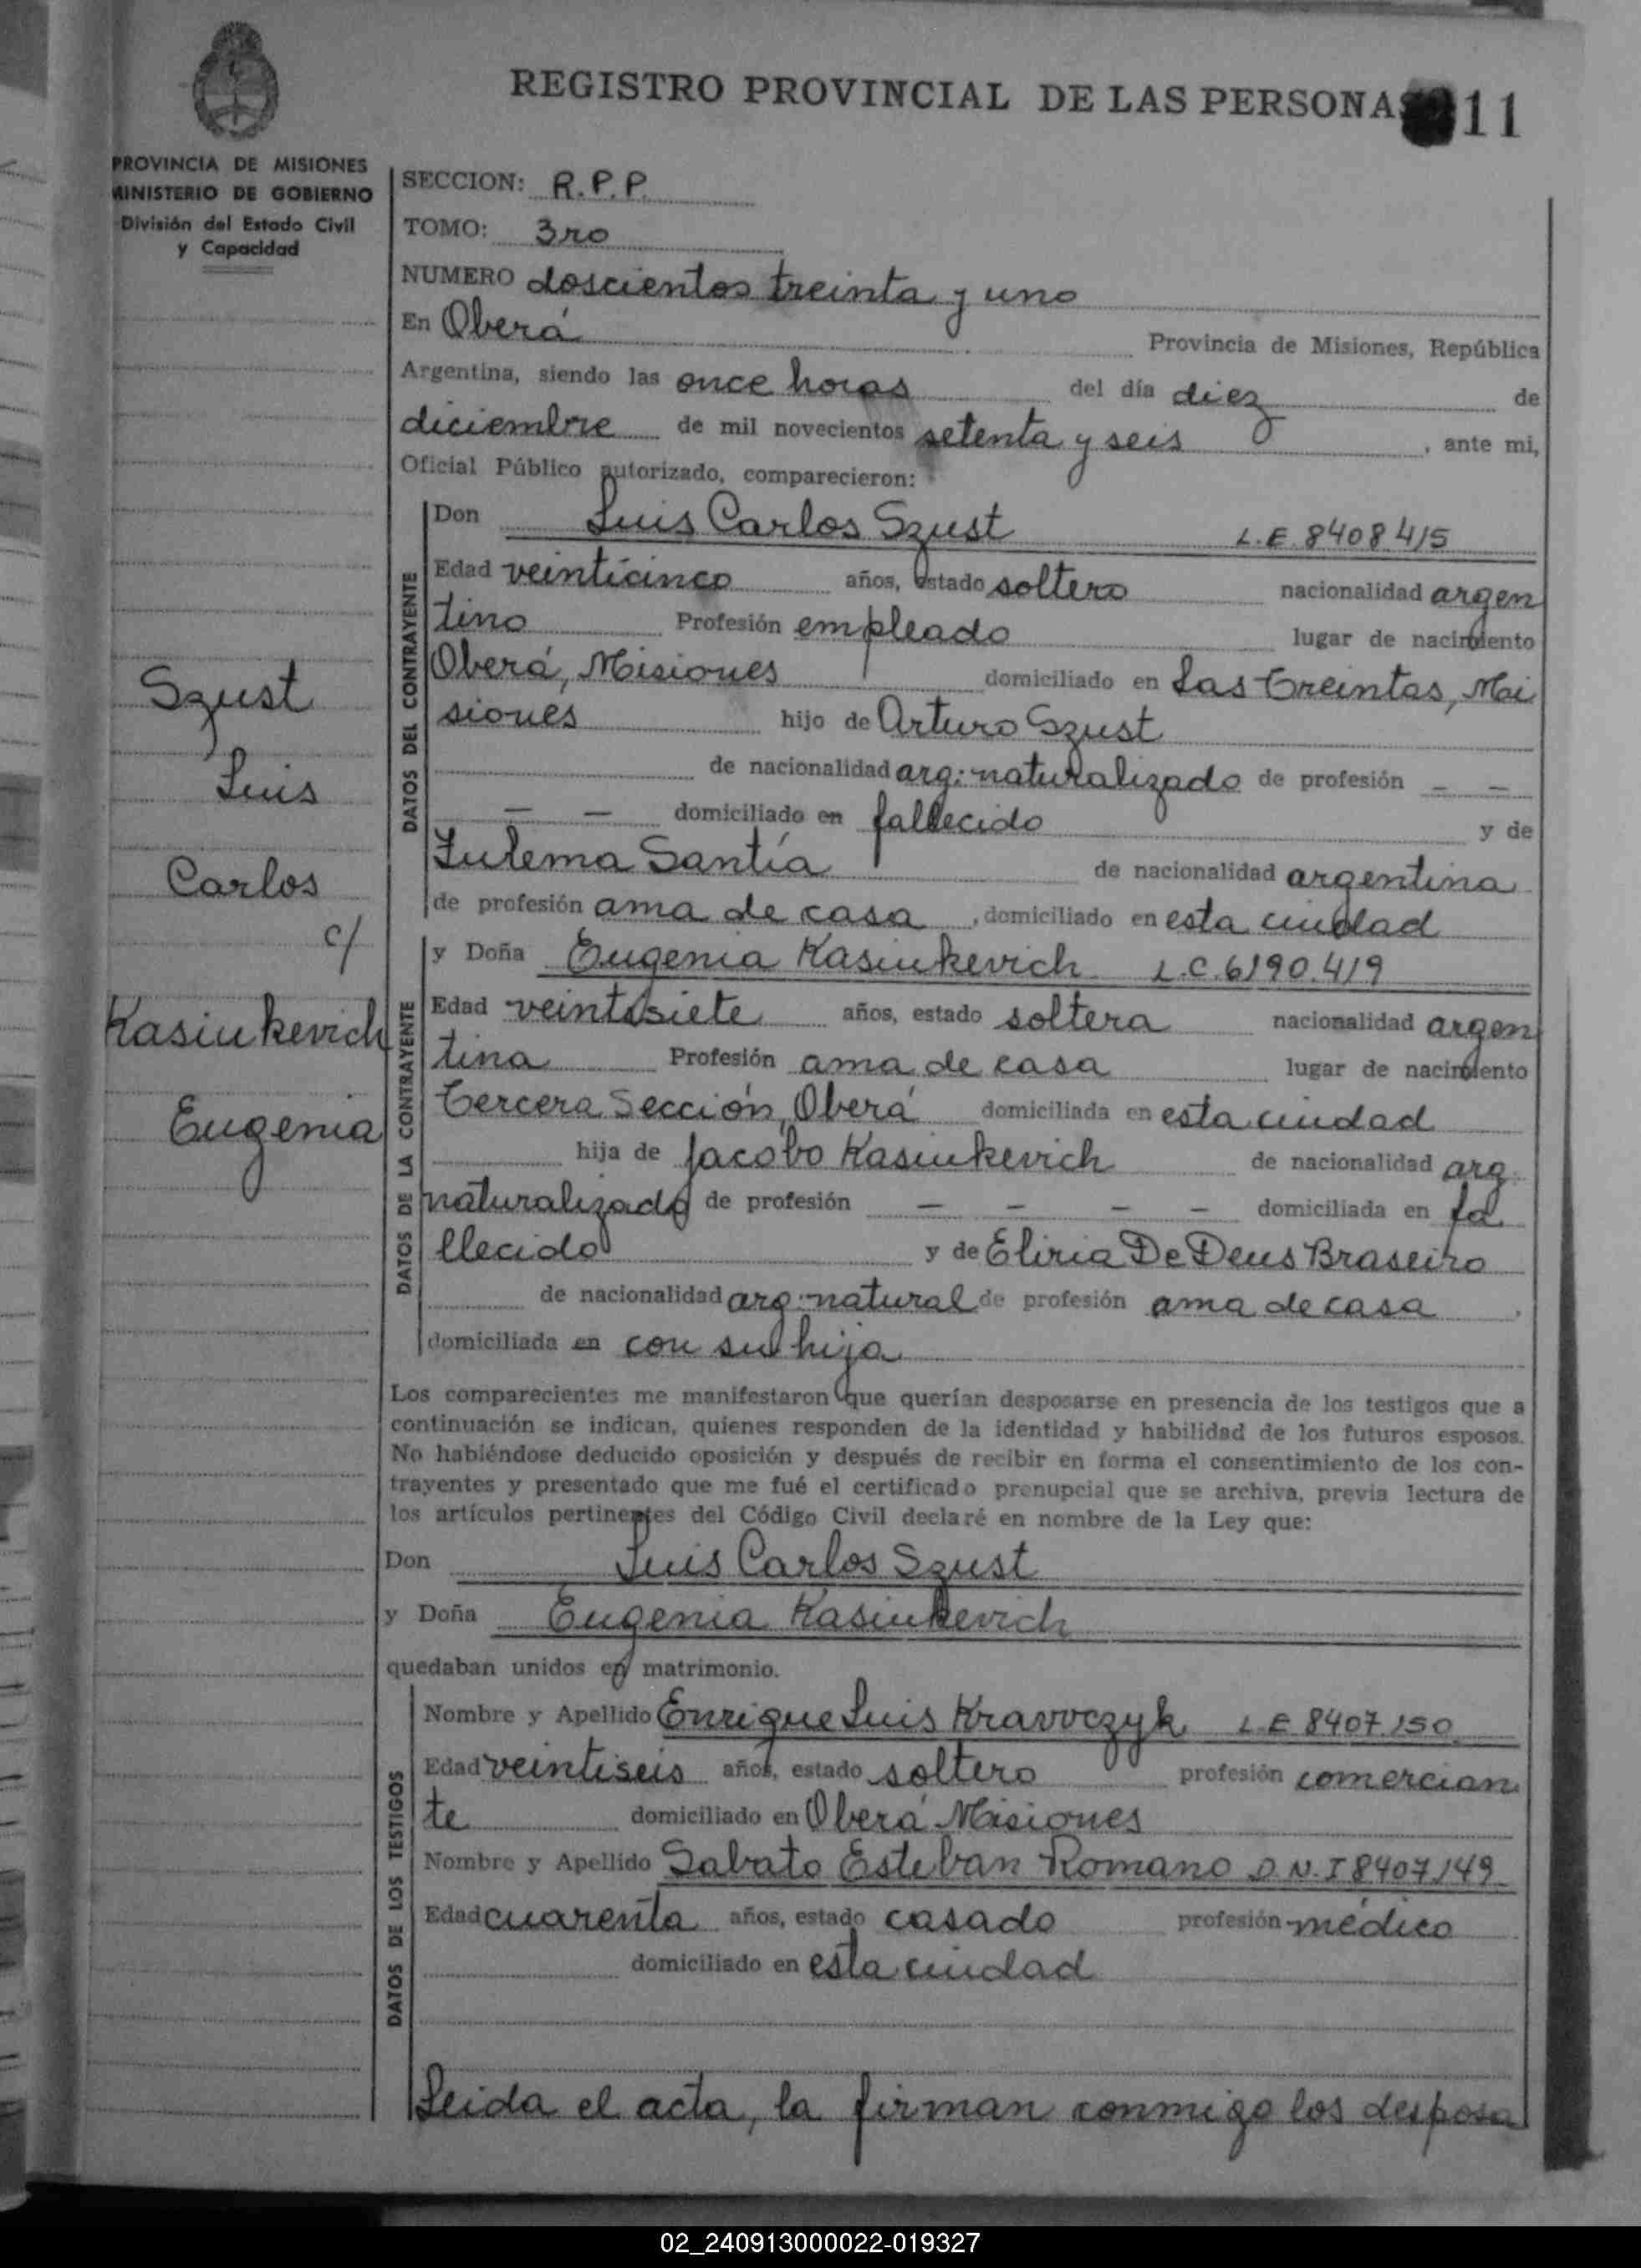 REGISTRO PROVINCIAL DE LAS PERSONAS 11
PROVINCIA DE MISIONES
MINISTERIO DE GOBIERNO
División del Estado Civil
y Capacidad
SECCION: R.P.P.
TOMO: 3ro
NUMERO doscientos treinta y uno
En Oberá Provincia de Misiones, República
Argentina, siendo las once horas del día diez de
diciembre de mil novecientos setenta y seis, ante mi,
Oficial Público autorizado, comparecieron:
DATOS DEL CONTRAYENTE
Don Luis Carlos Szust L.E 8408415
Edad veinticinco años, estado soltero nacionalidad argen
tino Profesión empleado lugar de nacimiento
Oberá, Misiones domiciliado en Las Treintas, Mi
siones hijo de Arturo Szust
de nacionalidad arg: naturalizado de profesión — —
— — domiciliado en fallecido y de
Zulema Santía de nacionalidad argentina
de profesión ama de casa, domiciliado en esta ciudad
Szust
Luis
Carlos
c/
Kasiukevich
Eugenia
DATOS DE LA CONTRAYENTE
y Doña Eugenia Kasiukevich L.C. 6190.419
Edad veintisiete años, estado soltera nacionalidad argen
tina Profesión ama de casa lugar de nacimiento
Tercera Sección, Oberá domiciliada en esta ciudad
hija de Jacobo Kasiukevich de nacionalidad arg.
naturalizado de profesión — — — — domiciliada en fa
llecido y de Eliria De Deus Braseiro
de nacionalidad arg. natural de profesión ama de casa,
domiciliada en con su hija
Los comparecientes me manifestaron que querían desposarse en presencia de los testigos que a
continuación se indican, quienes responden de la identidad y habilidad de los futuros esposos.
No habiéndose deducido oposición y después de recibir en forma el consentimiento de los con-
trayentes y presentado que me fué el certificado prenupcial que se archiva, previa lectura de
los artículos pertinentes del Código Civil declaré en nombre de la Ley que:
Don Luis Carlos Szust
y Doña Eugenia Kasiukevich
quedaban unidos en matrimonio.
DATOS DE LOS TESTIGOS
Nombre y Apellido Enrique Luis Kravvczyk L.E 8407.150
Edad veintiseis años, estado soltero profesión comercian
te domiciliado en Oberá Misiones
Nombre y Apellido Sabato Esteban Romano D.N.I 8407149
Edad cuarenta años, estado casado profesión médico
domiciliado en esta ciudad
Leida el acta, la firman conmigo los desposa
02_240913000022-019327